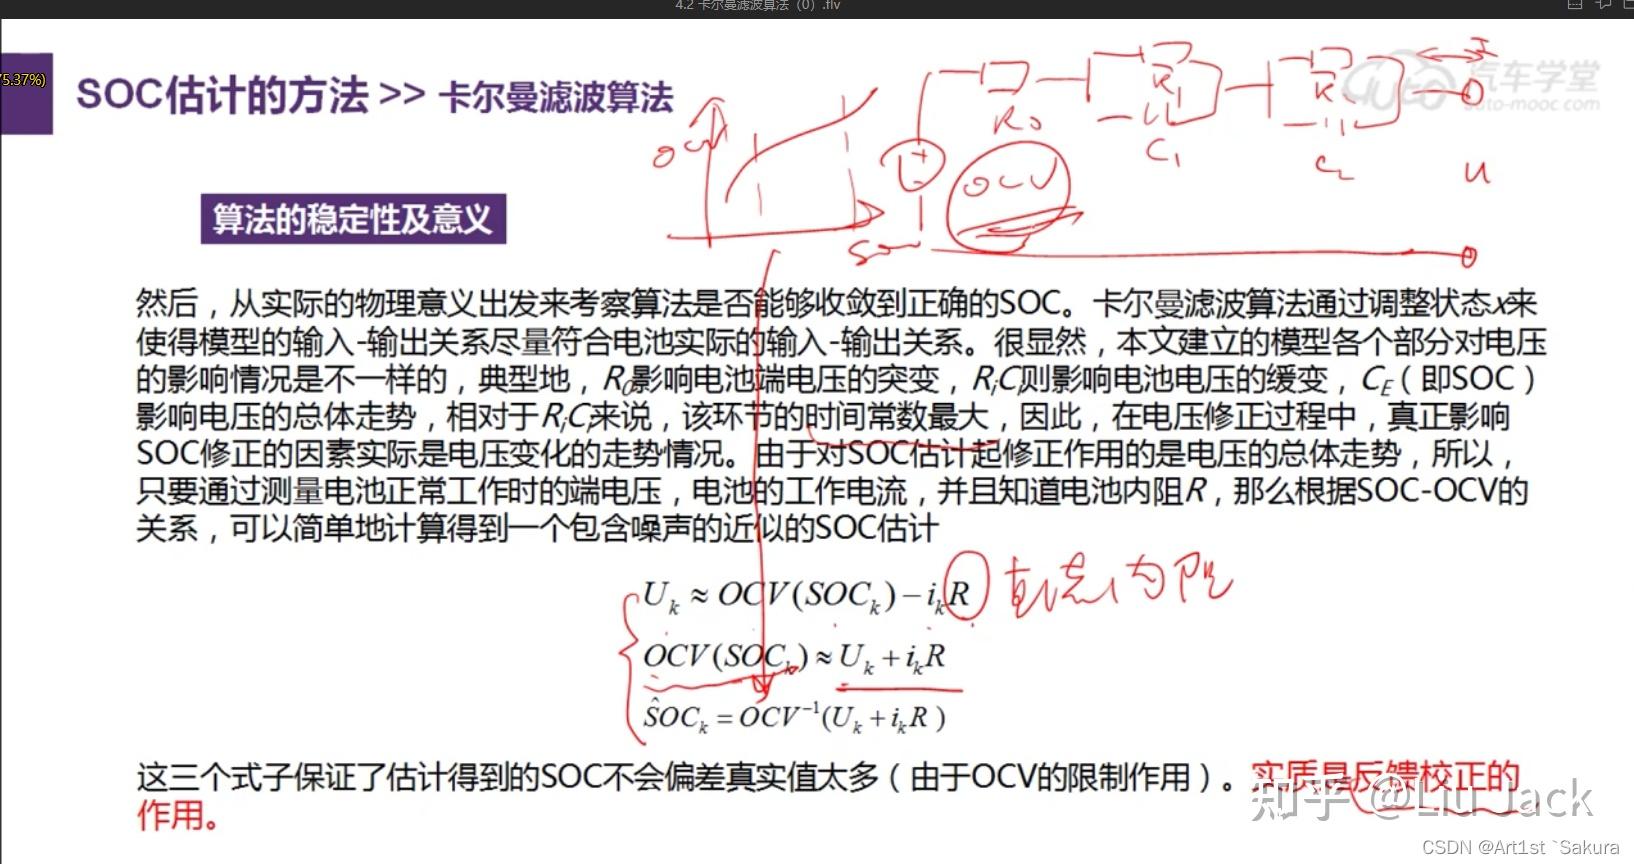 4.2 卡尔曼滤波算法（0）.flv
75.37%)
SOC估计的方法 >> 卡尔曼滤波算法
汽车学堂
auto-mooc.com
OCV
SOC
OCV
R0
R1
C1
C2
I
U
算法的稳定性及意义
然后，从实际的物理意义出发来考察算法是否能够收敛到正确的SOC。卡尔曼滤波算法通过调整状态x来
使得模型的输入-输出关系尽量符合电池实际的输入-输出关系。很显然，本文建立的模型各个部分对电压
的影响情况是不一样的，典型地，R0影响电池端电压的突变，RiCi则影响电池电压的缓变，CE（即SOC）
影响电压的总体走势，相对于RiCi来说，该环节的时间常数最大，因此，在电压修正过程中，真正影响
SOC修正的因素实际是电压变化的走势情况。由于对SOC估计起修正作用的是电压的总体走势，所以，
只要通过测量电池正常工作时的端电压，电池的工作电流，并且知道电池内阻R，那么根据SOC-OCV的
关系，可以简单地计算得到一个包含噪声的近似的SOC估计
Uk ≈ OCV(SOCk) − ikR 直流内阻
OCV(SOCk) ≈ Uk + ikR
ŜOCk = OCV⁻¹(Uk + ikR)
这三个式子保证了估计得到的SOC不会偏差真实值太多（由于OCV的限制作用）。实质是反馈校正的
作用。
知乎 @Liu Jack
CSDN @Art1st `Sakura